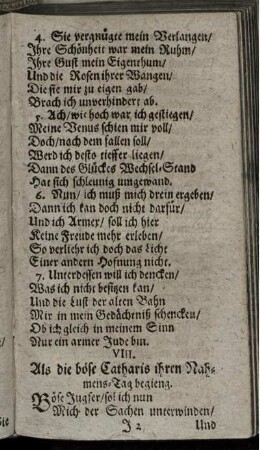 4. Sie vergnügte mein Verlangen/
Ihre Schönheit war mein Ruhm/
Ihre Gust mein Eigenthum/
Und die Rosen ihrer Wangen/
Die sie mir zu eigen gab/
Brach ich unverhindert ab.
5. Ach/ wie hoch war ich gestiegen/
Meine Venus schien mir voll/
Doch/ nach dem fallen soll/
Werd ich desto tieffer liegen/
Dann des Glückes Wechsel-Stand
Hat sich schleunig umgewand.
6. Nun/ ich muß mich drein ergeben/
Dann ich kan doch nicht darfür/
Und ich Armer/ soll ich hier
Keine Freude mehr erleben/
So verliehr ich doch das Licht
Einer andern Hofnung nicht.
7. Unterdessen will ich dencken/
Was ich nicht besitzen kan/
Und die Lust der alten Bahn
Mir in mein Gedächtniß schencken/
Ob ich gleich in meinem Sinn
Nur ein armer Jude bin.
VIII.
Als die böse Catharis ihren Nah-
mens-Tag begieng.
Böse Jugfer/ sol ich nun
Mich der Sachen unterwinden/
J 2 Und